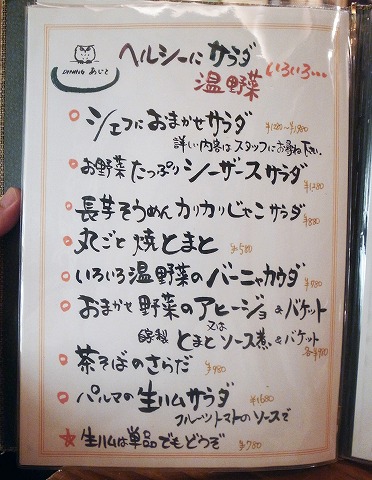 DINING あじと
ヘルシーに サラダ
温野菜 いろいろ…
シェフにおまかせサラダ ¥1280~¥1980
詳しい内容はスタッフにお尋ね下さい。
お野菜たっぷりシーザースサラダ ¥1280
長芋そうめんカリカリじゃこサラダ ¥880
丸ごと焼とまと ¥580
いろいろ温野菜のバーニャカウダ ¥980
おまかせ野菜のアヒージョ & バケット
又は
自家製 とまとソース煮 & バケット
各¥980
茶そばのさらだ ¥980
パルマの生ハムサラダ ¥1680
フルーツトマトのソースで
☆ 生ハムは単品でもどうぞ ¥780